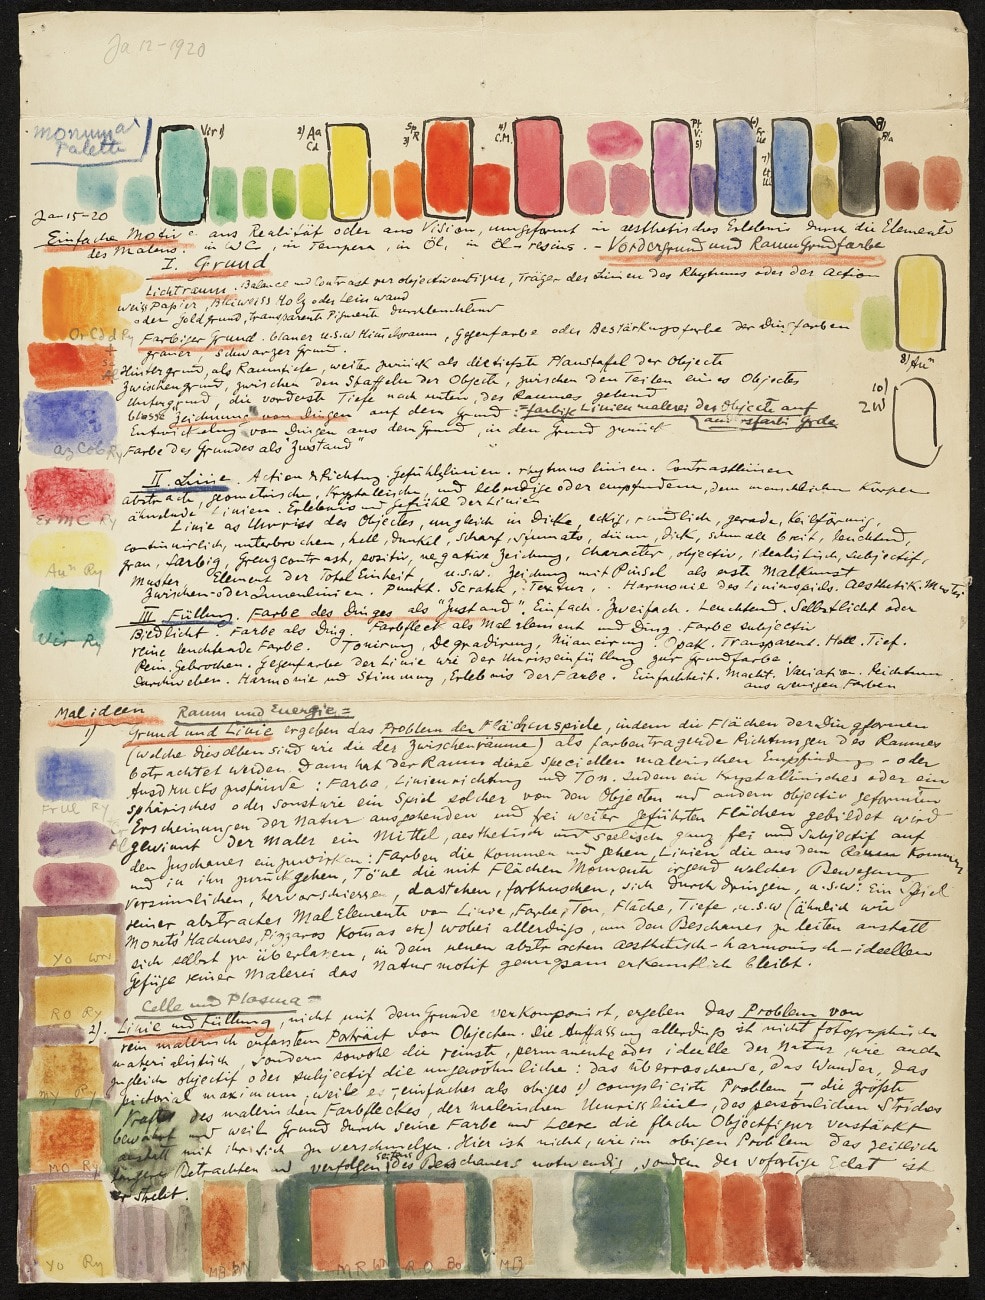 Ja 12-1920
Monuma
Palette
Vir 1)
2) Aa
Cd
3)
4)
C.M.
5)
6)
7)
8)
Bla
Jan-15-20
Einfache Motive aus Realität oder aus Vision, umgeformt in aesthetisches Erlebnis durch die Elemente
des Malens. in WC, in Tempera, in Öl, in Öl-resins. - Vordergrund und Raumgrundfarbe
I. Grund
Lichtraum. Balance und Contrast der objectiven Figur, Träger des Linien des Rhythmus oder der Action
weiss Papier, Bleiweiss Holz oder Leinwand
oder Goldgrund, transparente Pigmente durchleuchtend
Or Cd d Ry
Farbiger Grund. blauer u.s.w Hintergraum, Gegenfarbe oder Bestärkungsfarbe der Dingfarben
grauer, schwarzer Grund.
Hintergrund, als Raumtiefe, weiter zurück als die tiefste Planstafel der Objecte
8) Au
Zwischengrund, zwischen den Staffeln der Objecte, zwischen den Teilen eines Objectes
10)
2W
Untergrund, die vorderste Tiefe nach unten, des Raumes gebend
blasse Zeichnung von Dingen auf dem Grund: = farbige Linienmalerei des Objects auf
Entwicklung von Dingen aus dem Grund, in den Grund zurück
Az Cob Ry
Farbe des Grundes als "Zustand"
II. Linie. Action & Richtung. Gefühlslinien. rhythmuslinien. Contrastlinien
abstract geometrische, Krystallische und lebendige oder empfundene, dem menschlichen Körper
ähnelnde Linien. Erlebnis und Gefühl der Linien
Er MC Ry
Linie als Umriss des Objectes, ungleich in Dicke, eckig, rundlich, gerade, Keilförmig,
continuirlich, unterbrochen, hell, dunkel, scharf, sfumato, dünn, dick, schmall breit, leuchtend,
grau, farbig, Grenzcontrast, positiv, negative Zeichnung, character, objectiv, idealistisch, subjectiv,
Au Ry
Muster, Element der Total Einheit, u.s.w. Zeichnung mit Pinsel als erste Malkunst
Zwischen- oder Innenlinien. Punkt. Scratch, Textur, Harmonie des Linienspiels. Aesthetik.
III Füllung. Farbe des Dinges als "Zustand". Einfach. Zweifach. Leuchtend, Selbstlicht oder
Bildlicht. Farbe als Ding. Farbfleck als Malelement und Ding. Farbe subjectiv
Vir Ry
reine leuchtende Farbe. Tonirung, Degradirung, Nüancirung. Opak. Transparent. Hell. Tief.
Rein. Gebrochen. Gegenfarbe der Linie wie der Umrisseinfüllung zur Grundfarbe.
Durchweben. Harmonie und Stimmung, Erlebnis der Farbe. Einfachheit. Macht. Variation. Reichtum
aus wenigen Farben
Malideen
Raum und Energie =
1)
Grund und Linie ergeben das Problem der Flächenspiele, indem die Flächen der Dingformen
(welche dieselben sind wie die der Zwischenräume) als farbentragende Richtungen des Raumes
betrachtet werden. Dann hat der Raum diese speciellen malerischen Empfindungs- oder
Ausdrucksgründe: Farbe, Linienrichtung und Ton. Indem ein Krystallinisches oder ein
sphärisches oder sonst wie ein Spiel solcher von den Objecten und andern objectiv geformten
Frul Ry
Erscheinungen der Natur ausgehenden und frei weiter geführten Flächen gebildet wird
gewinnt der Maler ein Mittel, aesthetisch und seelisch ganz frei und subjectif auf
den Zuschauer einzuwirken: Farben die Kommen und gehen, Linien, die aus dem Raum kommen
und in ihn zurückgehen, Töne die mit Flächen Momente irgend welcher Bewegung
versinnlichen, hervorschiessen, dastehen, forthuschen, sich durchdringen, u.s.w. Ein Spiel
reiner abstracter MalElemente von Linie, Farbe, Ton, Fläche, Tiefe, u.s.w (ähnlich wie
etc) wobei allerdings, um den Beschauer zu leiten anstatt
sich selbst zu überlassen, in dem neuen abstracten aesthetisch-harmonisch-ideellen
Gefüge seiner Malerei das Naturmotif genugsam erkenntlich bleibt.
Yo
RO Ry
Celle und Plasma =
2). Linie und Füllung, nicht mit dem Grunde verkomponirt, ergeben das Problem von
rein malerisch erfasstem Porträt von Objecten. Die Auffassung allerdings ist nicht fotographisch
materialistisch, sondern sowohl die reinste, permanente oder ideelle der Natur, wie auch
zugleich objectif oder subjectif die ungewöhnliche: das Überraschende, das Wunder, das
pictorial maximum, weil es, einfacher als obiges 1) complicirte Problem - die größte
Kraft des malerischen Farbfleckes, der malerischen Umrisslinie, des persönlichen Striches
bewahrt und weil Grund durch seine Farbe und Leere die flache Objectfigur verstärkt
anstatt mit ihr sich zu verschmelzen. Hier ist nicht, wie im obigen Problem das zeitlich
längere Betrachten und verfolgen seitens des Beschauers notwendig, sondern der sofortige Eclat ist
erstrebt.
MO Ry
Yo Ry
RO
MB